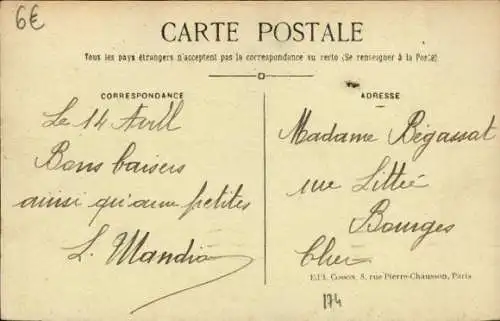 6€
CARTE POSTALE
Tous les pays étrangers n'acceptent pas la correspondance au recto (Se renseigner à la Poste)
CORRESPONDANCE
Le 14 Avril
Bons baisers
ainsi qu'aux petites
L. Mandia
ADRESSE
Madame Bégassat
rue Littré
Bourges
Cher
Edit. Cosson, 8, rue Pierre-Chausson, Paris
174